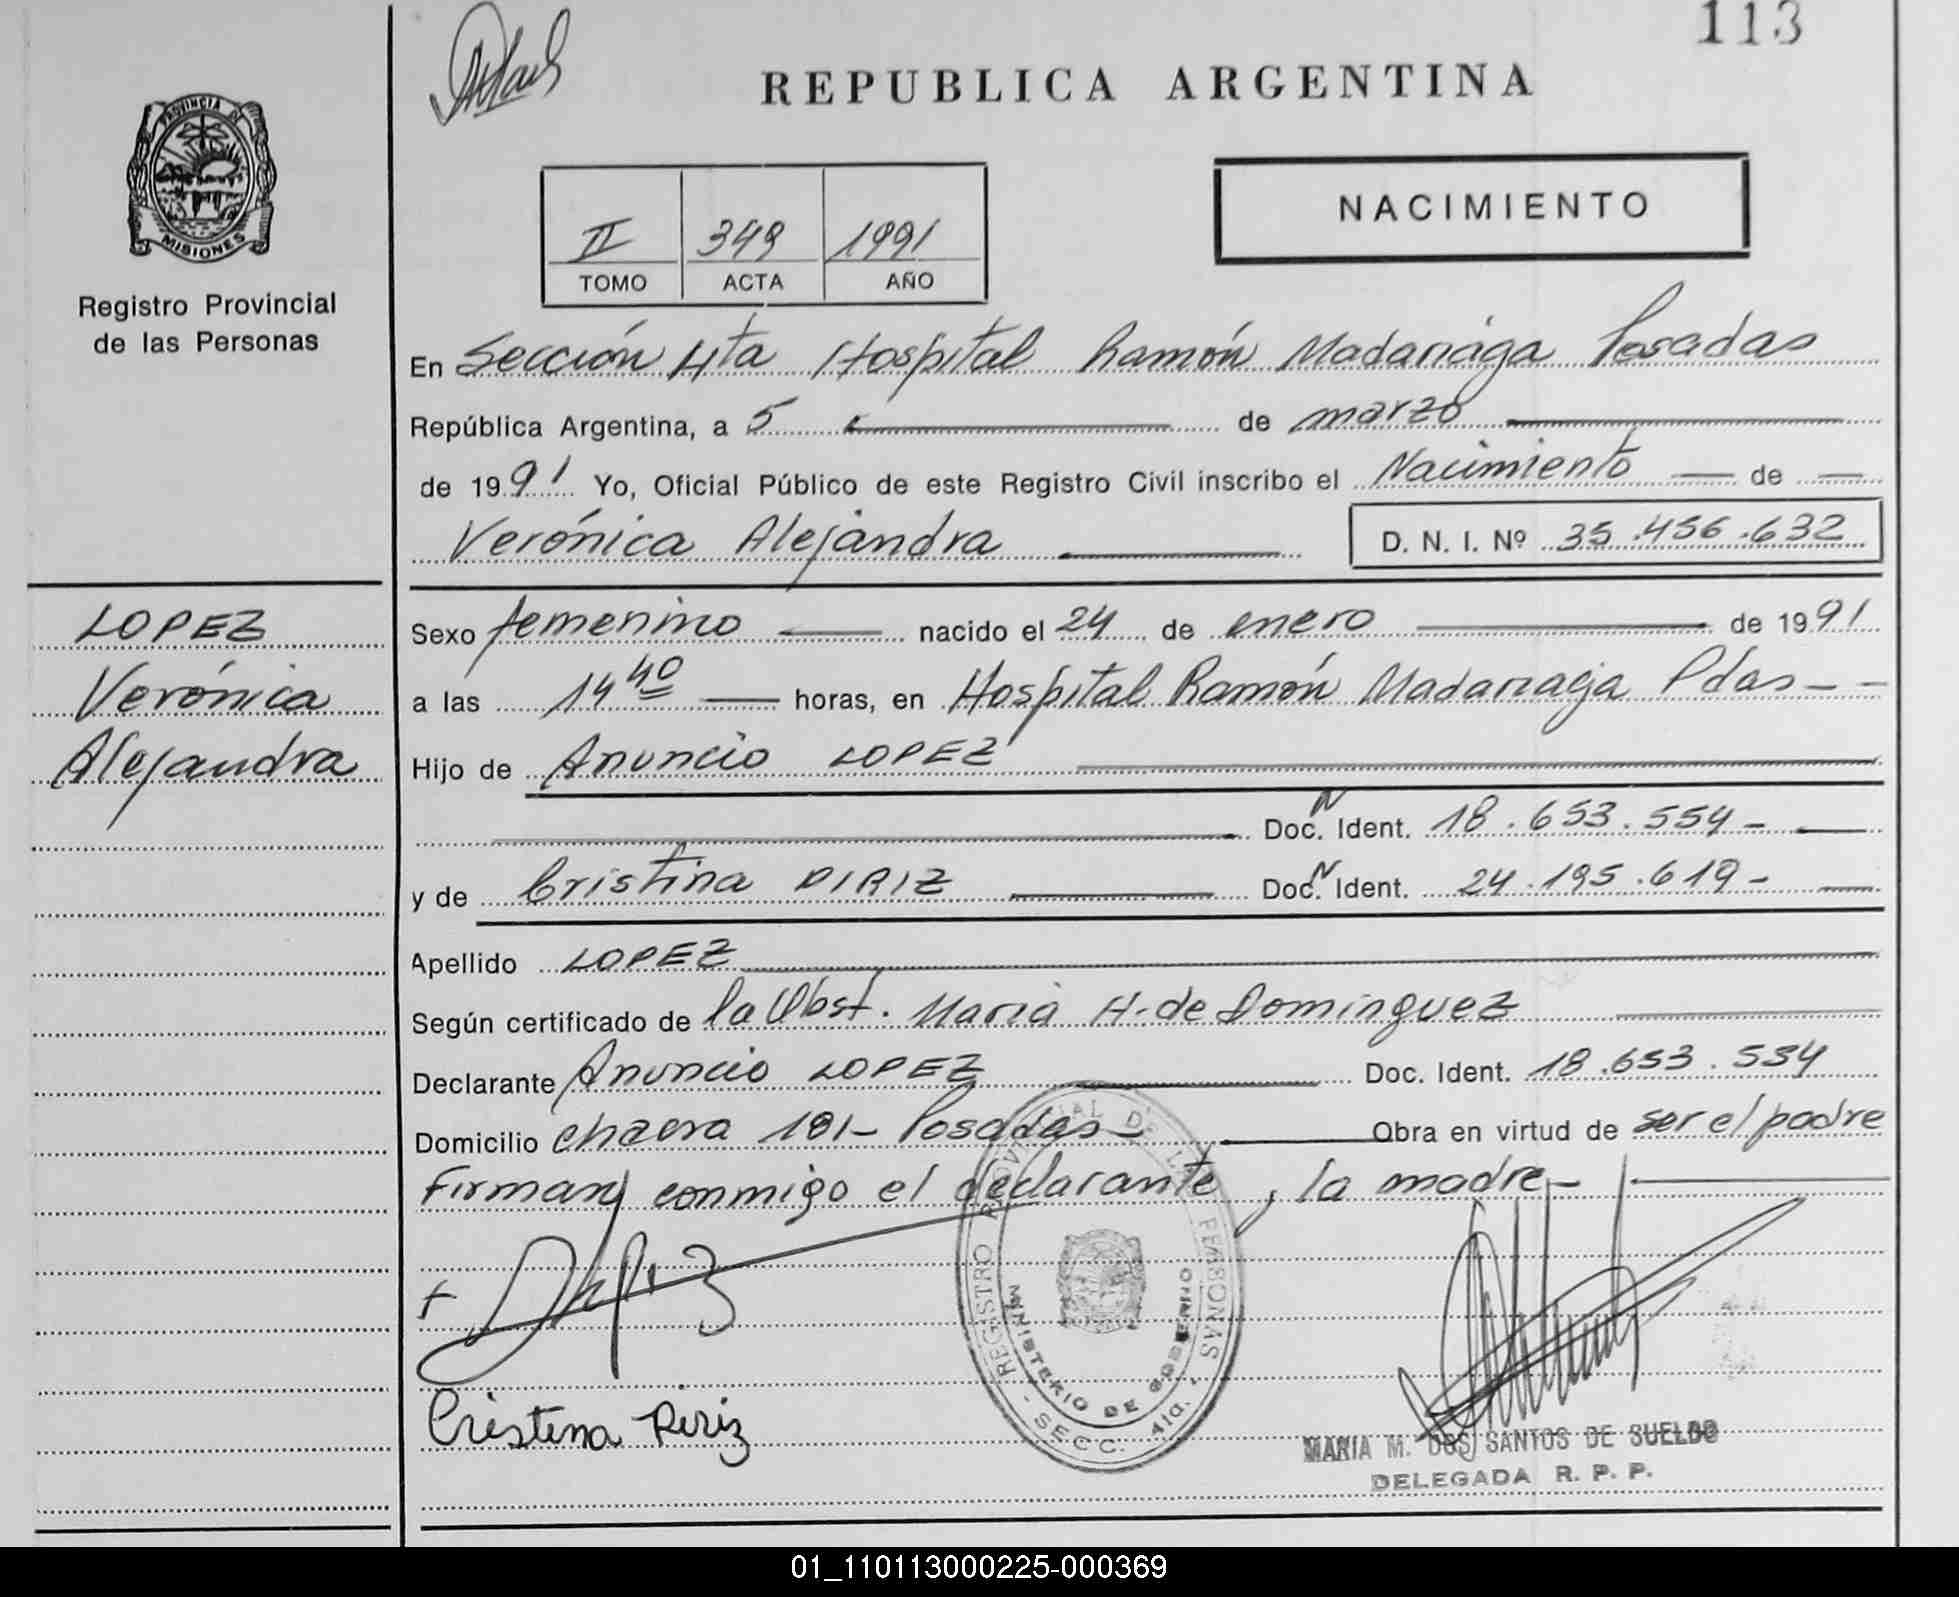 113
REPUBLICA ARGENTINA
PROVINCIA DE
MISIONES
Registro Provincial
de las Personas
NACIMIENTO
II 349 1991
TOMO ACTA AÑO
En Sección 4ta Hospital Ramón Madariaga Posadas
República Argentina, a 5 de marzo
de 1991 Yo, Oficial Público de este Registro Civil inscribo el Nacimiento de
Verónica Alejandra D. N. I. Nº 35.456.632
LOPEZ
Verónica
Alejandra
Sexo femenino nacido el 24 de enero de 1991
a las 14 40 horas, en Hospital Ramón Madariaga Pdas - -
Hijo de Anuncio LOPEZ
Doc. N Ident. 18.653.554 -
y de Cristina PIRIZ Doc. N Ident. 24.195.619 -
Apellido LOPEZ
Según certificado de la Obst. Maria H. de Dominguez
Declarante Anuncio LOPEZ Doc. Ident. 18.653.554
Domicilio chacra 181- Posadas - Obra en virtud de ser el padre
Firman conmigo el declarante y la madre -
REGISTRO PROVINCIAL DE LAS PERSONAS
MINISTERIO DE GOBIERNO
- SECC. 4ta. -
Cristina Piriz
MARIA M. DOS SANTOS DE SUELDO
DELEGADA R. P. P.
01_110113000225-000369